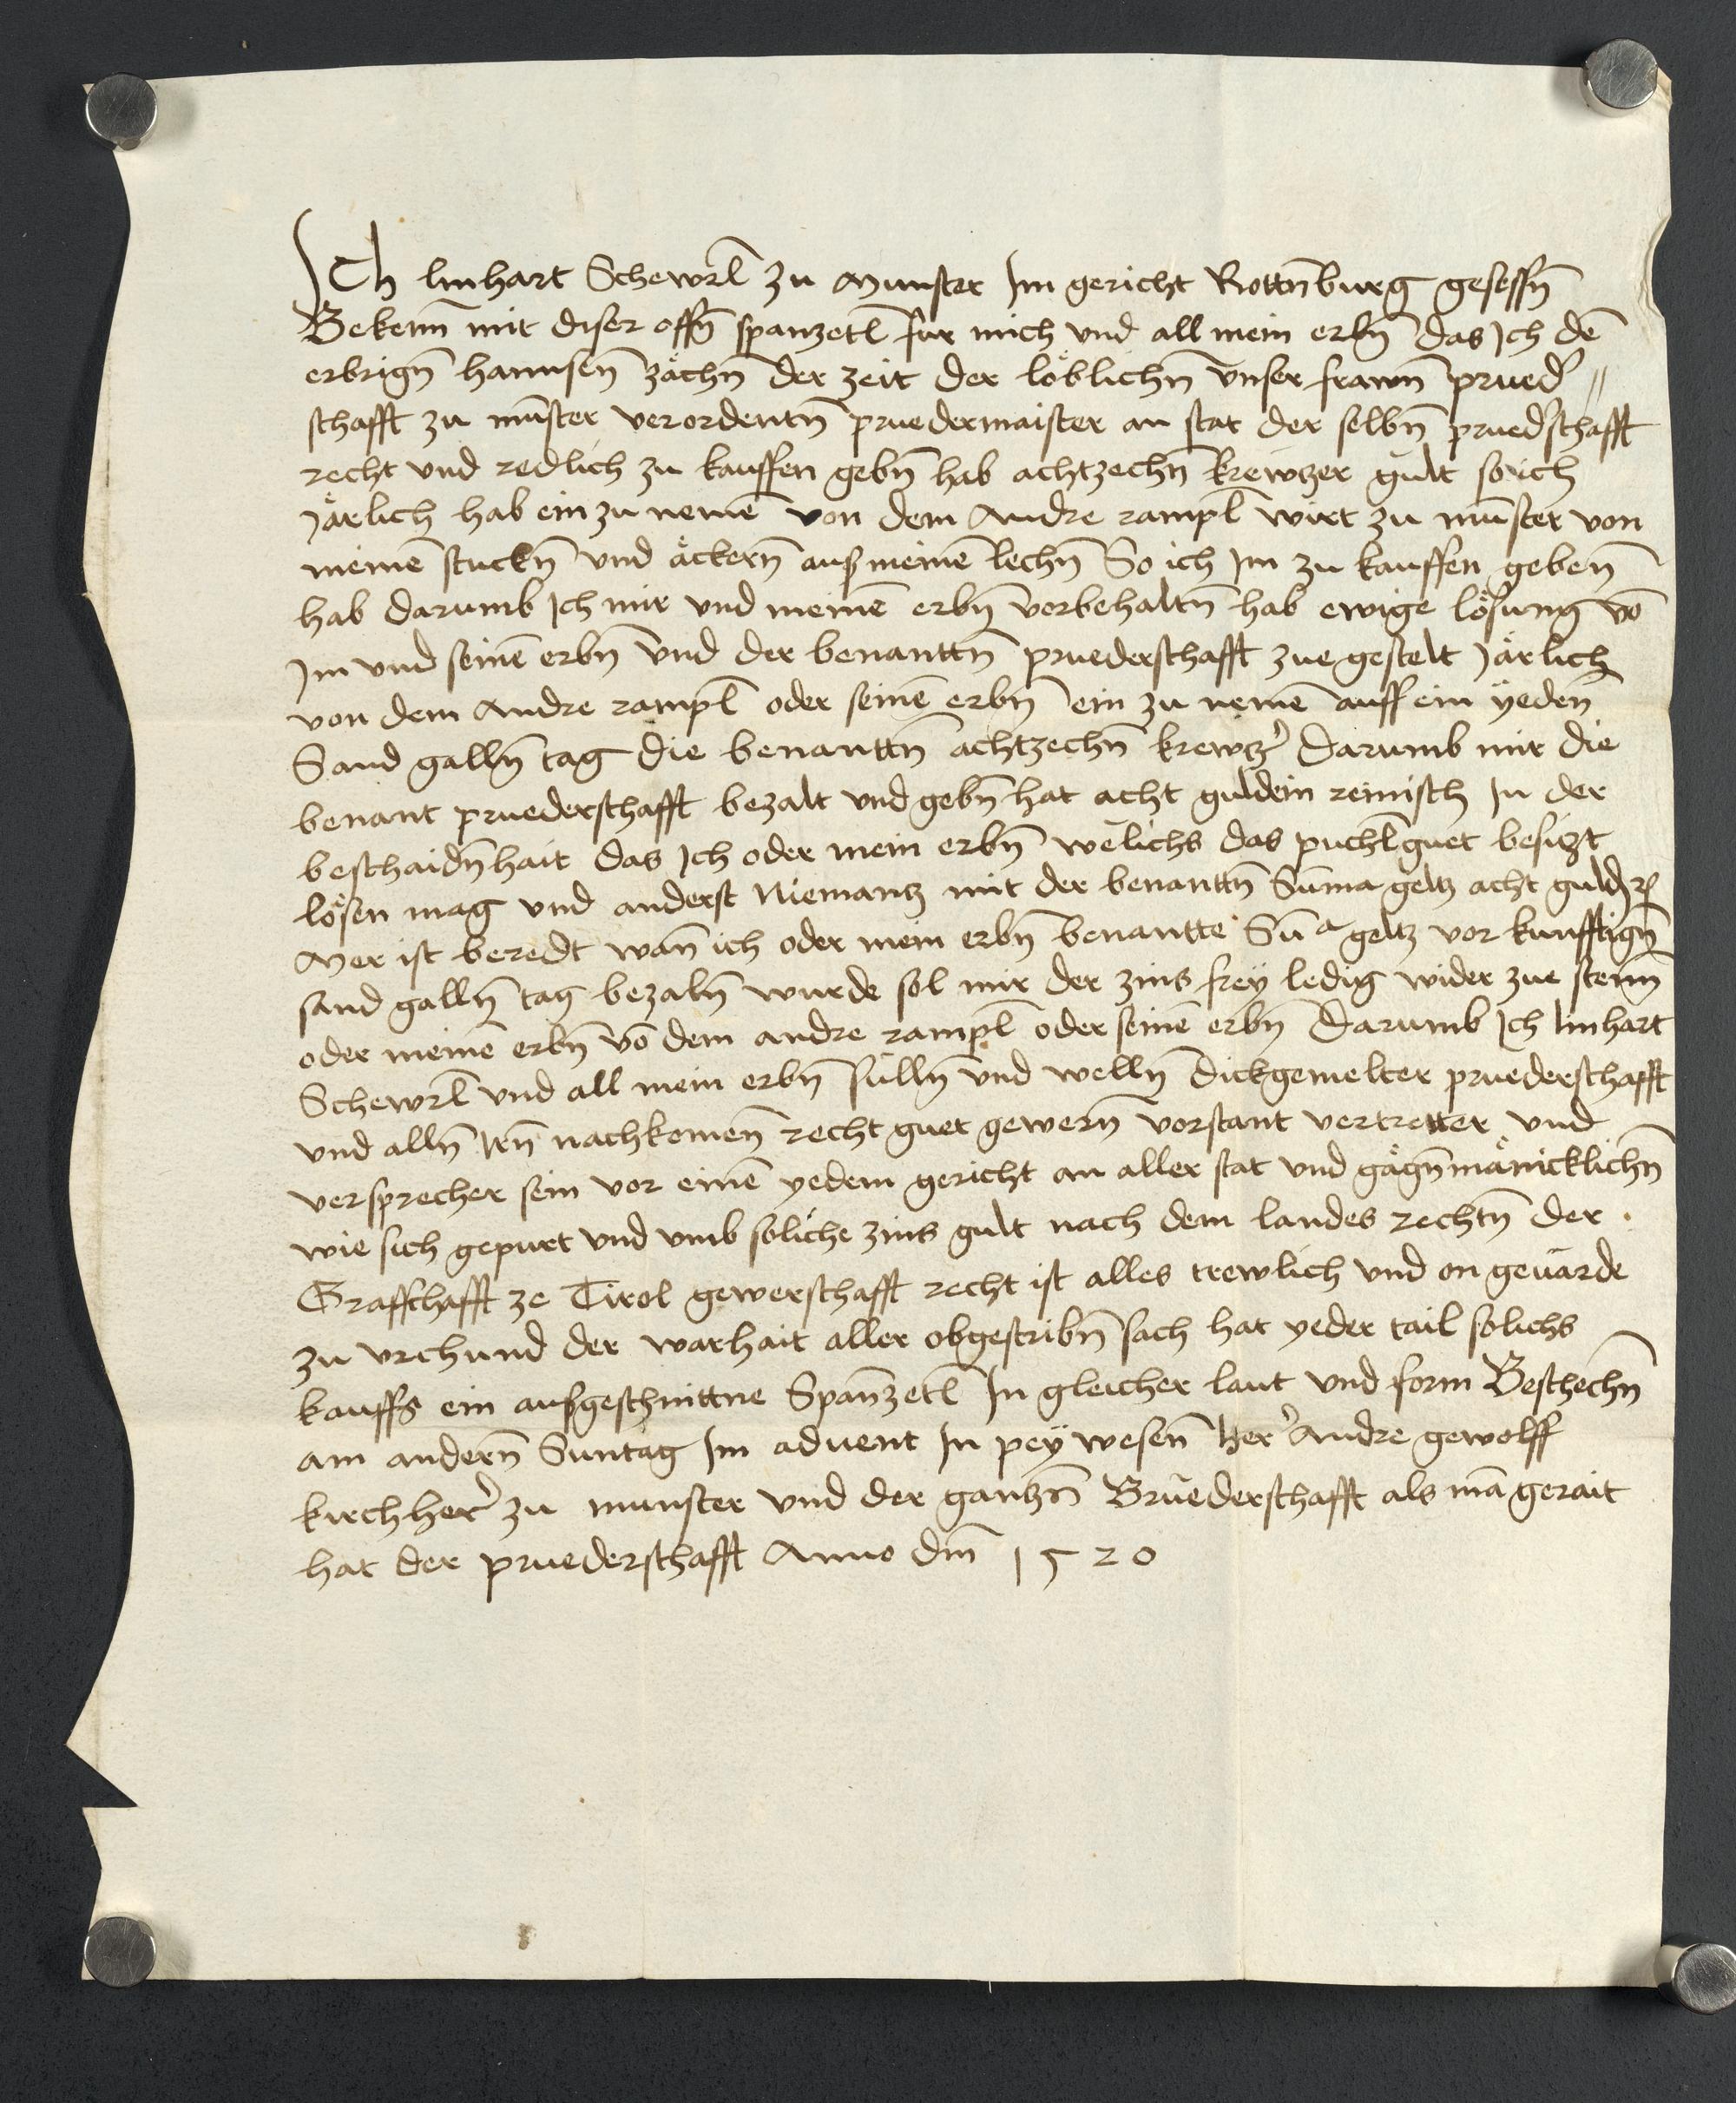 ICh linhart Schewrl zu Munster Jm gericht Rottnburg gesessn̄
Bekenn̄ mit diser offn̄ spanzetl fur mich vnd all mein erbn̄ das Jch dē
erbrign̄ hannsen̄ zächn̄ der zeit der löblichn̄ vnser frawn̄ prued' //
schafft zu mūster verordentn̄ pruedermaister an stat der selbn̄ pruedschafft
recht vnd redlich zu kauffen gebn̄ hab achtzechn̄ krewtzer gult so ich
Järlich hab ein zu nemē von dem Andre rampl wirt zu mūster von
meinē stuckn̄ vnd äckern̄ auß meinē lechn̄ So ich Jm zu kauffen geben̄
hab darumb Jch mir vnd meinē erbn̄ vorbehaltn̄ hab ewige lösung vō
Jm vnd seinē erbn̄ vnd der benanttn̄ pruederschafft zue gestelt Järlich
von dem Andre rampl oder seinē erbn̄ ein zu nemē auff ein ÿeden̄
Sand galln̄ tag die benanttn̄ achtzechn̄ krewtz' darumb mir die
benant pruederschafft bezalt vnd gebn̄ hat acht guldein reinisch Jn der
beschaidn̄hait das Jch oder mein erbn̄ welichs das puchl guet besitzt
lösen mag vnd anderst Niemantz mit der benanttn̄ Sūma geltz acht guld r
Mer ist beredt wan̄ ich oder mein erbn̄ benantte Sūa geltz vor kunfftign̄
sand galln̄ tag bezaln̄ wurde sol mir der zins freÿ ledig wider zue stenn̄
oder meinē erbn̄ vō dem andre rampl oder seinē erbn̄ Darumb Jch linhart
Schewrl vnd all mein erbn̄ sulln̄ vnd welln̄ dickgemelter pruederschafft
vnd alln̄ Jrn̄ nachkomen̄ recht guet gewern̄ vorstant vertretter vnd
versprecher sein vor einē yedem gericht an aller stat vnd gägn̄ mänicklichn̄
wie sich gepurt vnd vmb soliche zins gult nach dem landes rechtn̄ der
Graffschafft ze Tirol gewerschafft recht ist alles trewlich vnd on geuärde
zu vrchund der warhait aller obgescribn̄ sach hat yeder tail solichs
kauffs ein außgeschnittne Span̄zetl Jn gleicher laut vnd form Beschechn̄
am andern̄ Suntag Jm aduent Jn peÿ wesen̄ her' Andre gewolff
kirchher' zu munster vnd der gantzn̄ Bruederschafft als mā gerait
hat der pruederschafft Anno dm̄ 1520